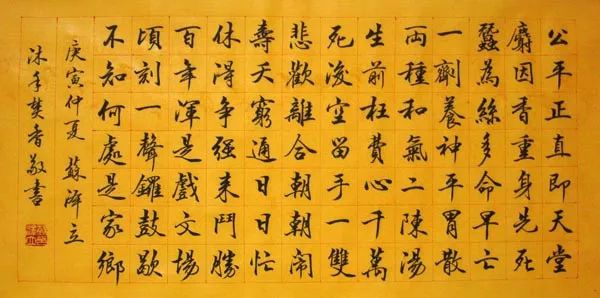 公平正直即天堂
麝因香重身先死
蠶為絲多命早亡
一劑養神平胃散
両種和氣二陳湯
生前枉費心千萬
死後空留手一雙
悲歡離合朝朝鬧
壽夭窮通日日忙
休得争强来鬥勝
百年渾是戲文場
頃刻一聲鑼鼓歇
不知何處是家鄉
庚寅仲夏 蘇立
沐手焚香敬書